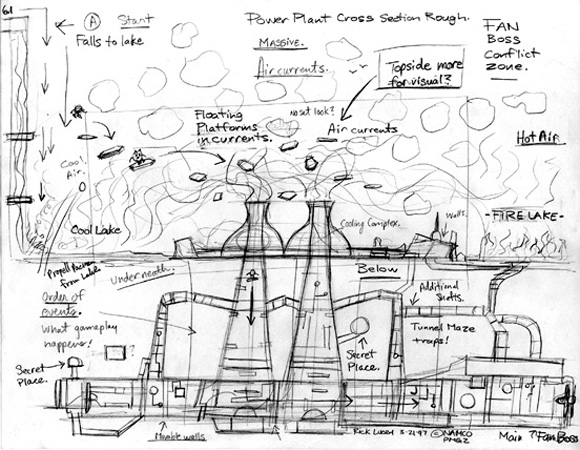 6.1
A Start
Falls to lake
Power Plant Cross Section Rough.
Massive.
Air currents.
FAN
BOSS
Conflict
zone.
Topside more
for visual?
No set look?
Floating
Platforms
in currents.
Air currents
Hot Air
Cool
Air.
Cool Lake
Cooling Complex.
Walls.
-FIRE LAKE-
from Lake
Underneath.
Below
Order of
events.
What gameplay
happens!
Additional
Shafts.
Tunnel Maze
traps!
?
Secret
Place.
Secret
Place.
Movable walls
3-21-97 © NAMCO
Main ? Fan Boss